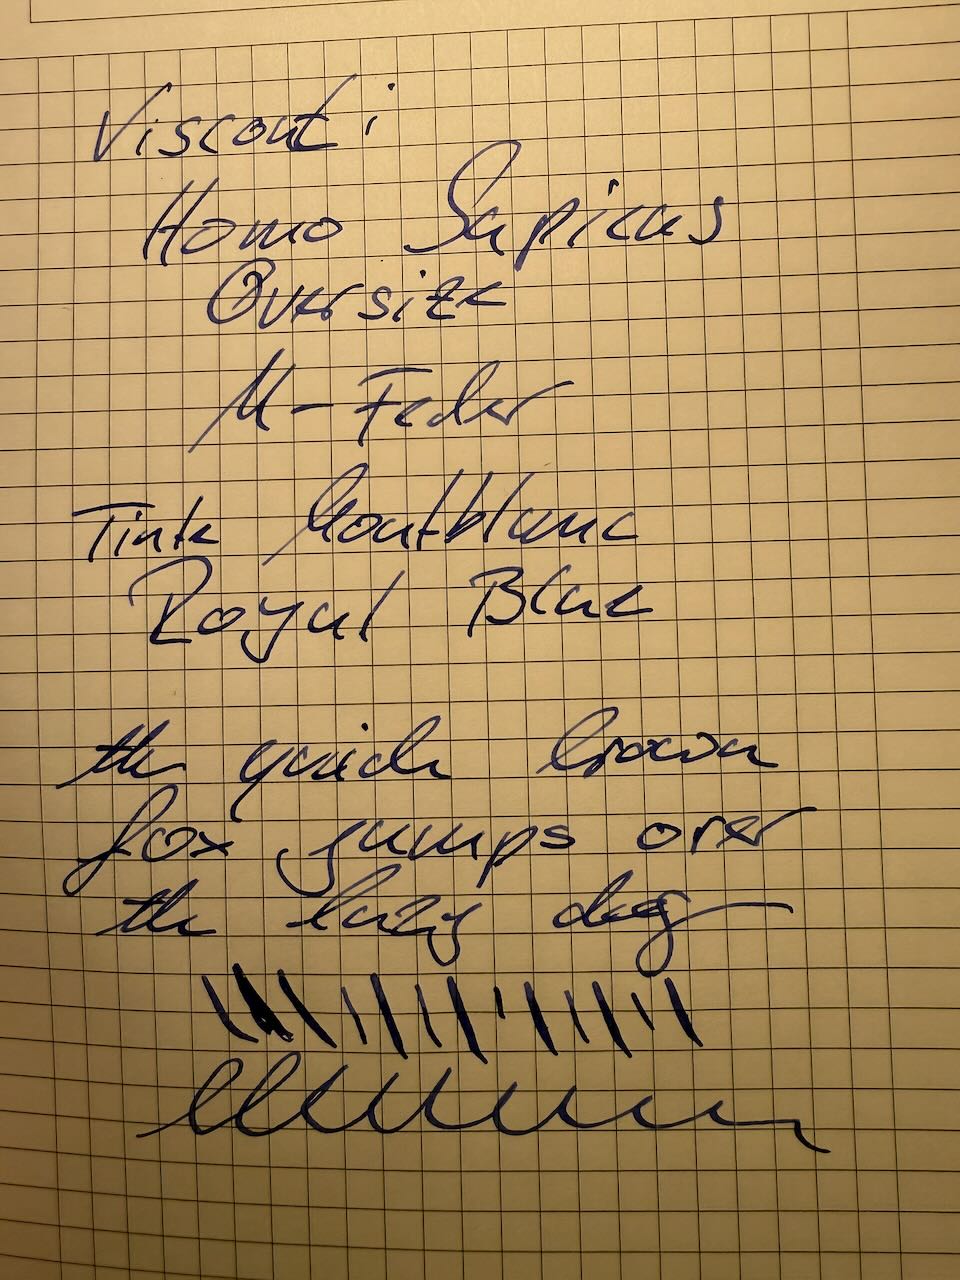 Visconti
Homo Sapiens
Oversize
M-Feder
Tinte Montblanc
Royal Blue
the quick brown
fox jumps over
the lazy dog